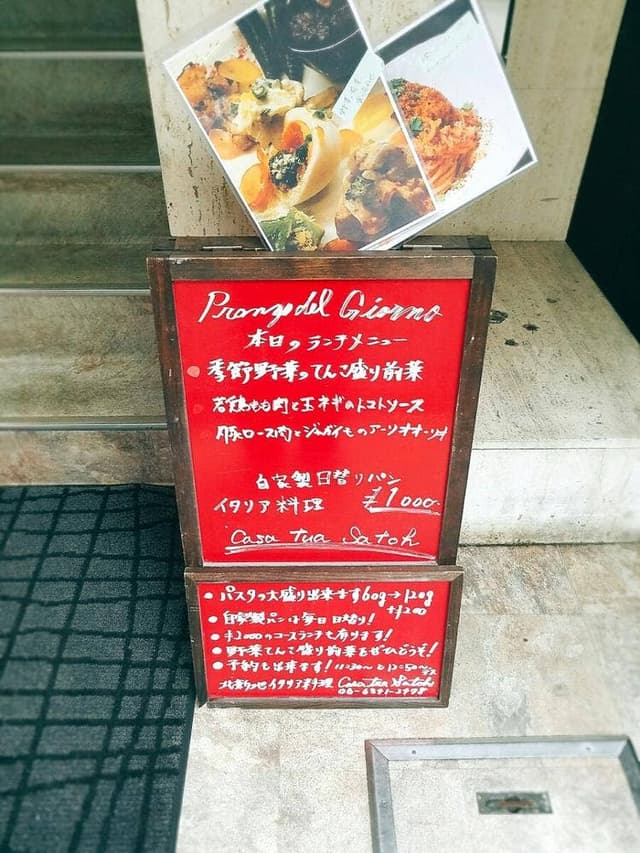 Pranzo del Giorno
本日のランチメニュー
季節野菜てんこ盛り前菜
若鶏もも肉と玉ネギのトマトソース
豚ロース肉とジャガイモのアーリオオーリオ
自家製日替りパン
イタリア料理 ¥1000-
Casa tua Satoh
・パスタの大盛り出来ます60g→120g
+¥200
・自家製パンは毎日日替り!
・¥2000のコースランチも有ります!
・野菜てんこ盛り前菜をぜひどうぞ!
・予約も出来ます! 11:30〜と12:50〜です
北新地イタリア料理 Casa tua Satoh